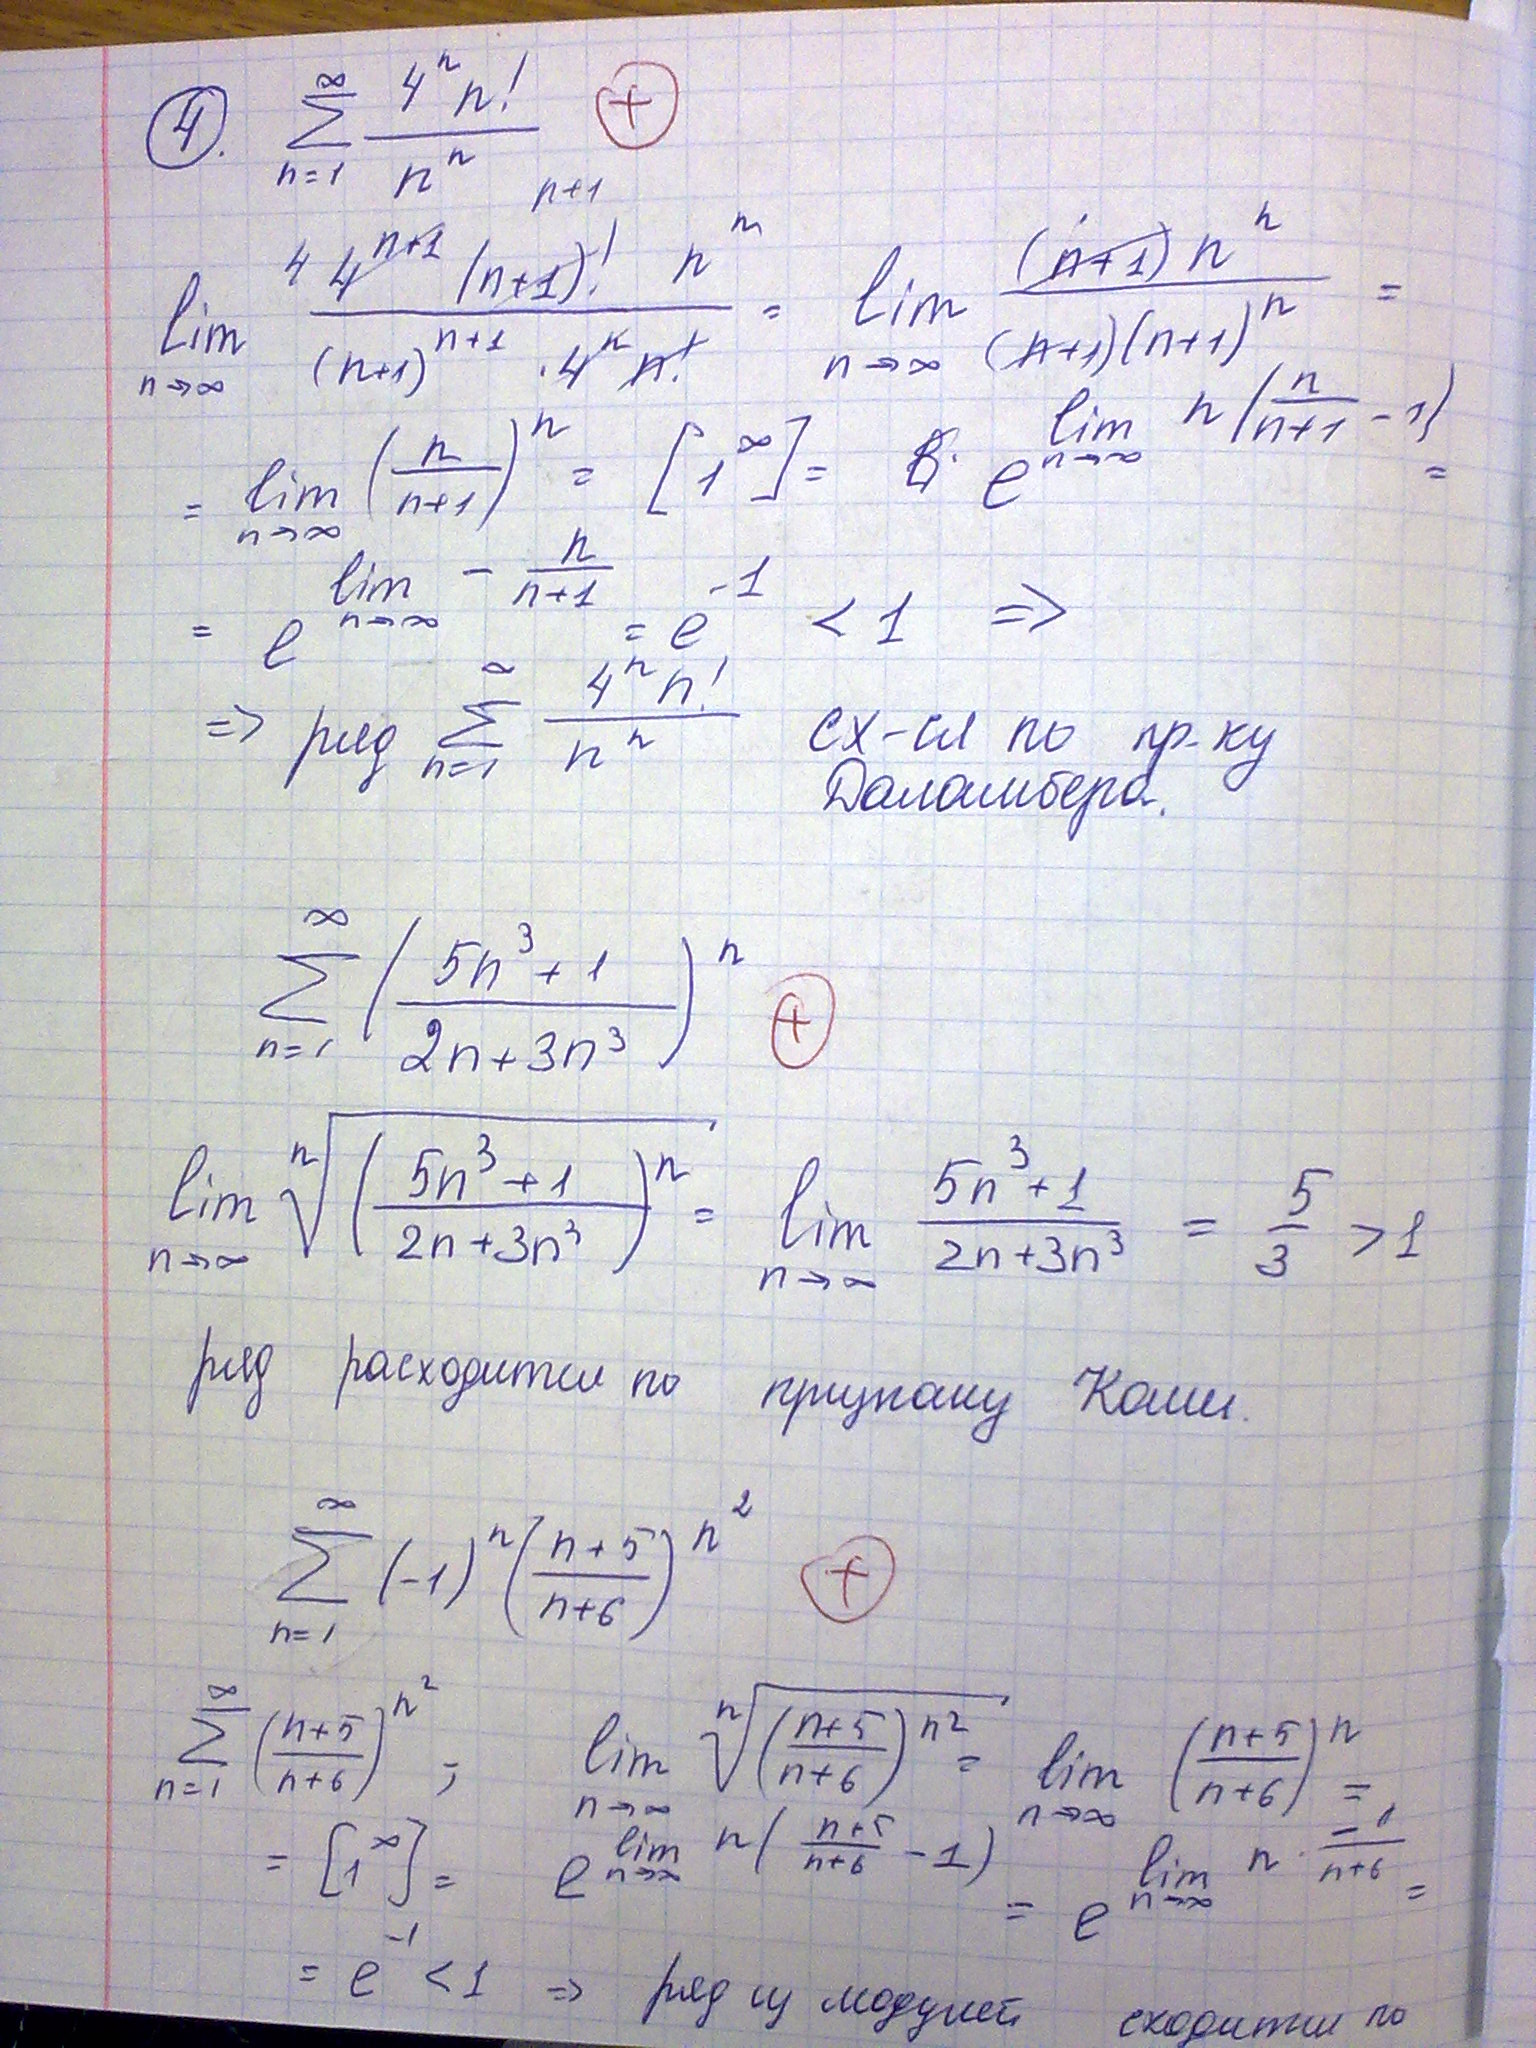 4. ∑_{n=1}^{∞} 4^n n! / n^n (+)
n+1
lim_{n→∞} 4 4^{n+1} (n+1)! n^n / ((n+1)^{n+1} · 4^n n!) = lim_{n→∞} (n+1) n^n / ((n+1)(n+1)^n) =
= lim_{n→∞} (n/(n+1))^n = [1^∞] = e^{lim_{n→∞} n(n/(n+1) - 1)} =
= e^{lim_{n→∞} - n/(n+1)} = e^{-1} < 1 =>
=> ряд ∑_{n=1}^{∞} 4^n n! / n^n сх-ся по пр-ку
Даламбера.
∑_{n=1}^{∞} ((5n^3+1)/(2n+3n^3))^n (+)
lim_{n→∞} ⁿ√(((5n^3+1)/(2n+3n^3))^n) = lim_{n→∞} (5n^3+1)/(2n+3n^3) = 5/3 > 1
ряд расходится по признаку Коши.
∑_{n=1}^{∞} (-1)^n ((n+5)/(n+6))^{n^2} (+)
∑_{n=1}^{∞} ((n+5)/(n+6))^{n^2}; lim_{n→∞} ⁿ√(((n+5)/(n+6))^{n^2}) = lim_{n→∞} ((n+5)/(n+6))^n =
= [1^∞] = e^{lim_{n→∞} n((n+5)/(n+6) - 1)} = e^{lim_{n→∞} n · -1/(n+6)} =
= e^{-1} < 1 => ряд из модулей сходится по